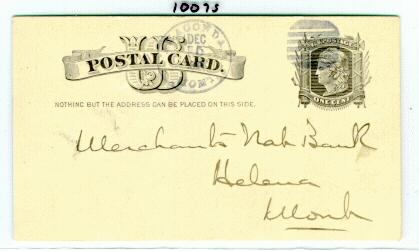 10075
US
POSTAL CARD.
DEC
U.S. POSTAGE
ONE CENT
NOTHING BUT THE ADDRESS CAN BE PLACED ON THIS SIDE.
Merchants Nat Bank
Helena
Mont